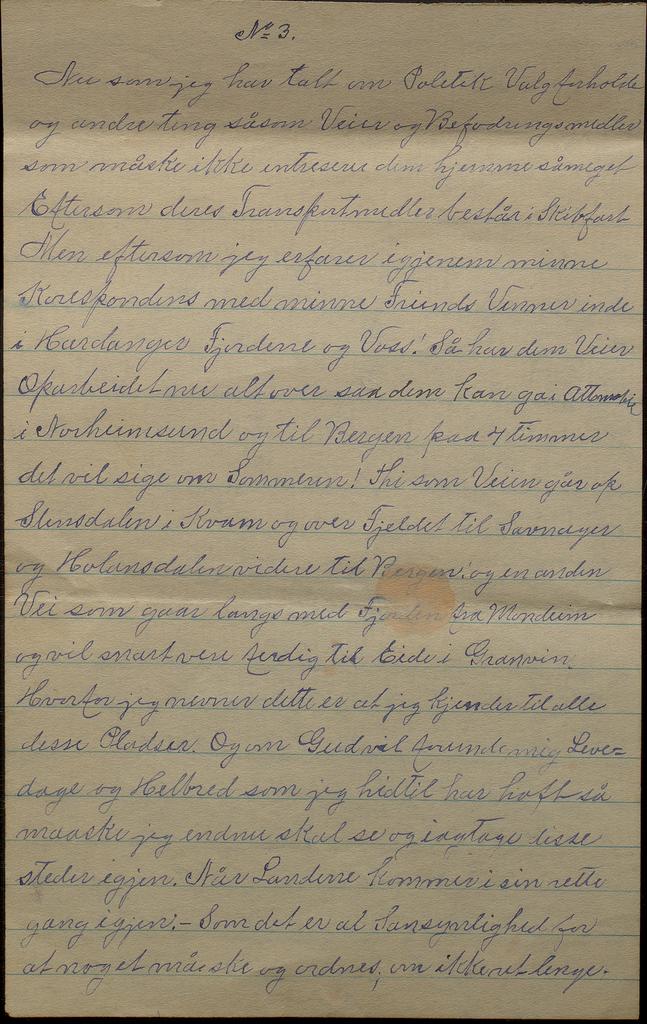 No 3.
Nu som jeg har talt om Politik Valgforholde
og andre ting såsom Veier og Befodringsmedler
som måske ikke entresere dem hjemme såmeget
Eftersom deres Transportmedler består i Skibfart
Men eftersom jeg erfarer igjenem minne
Korespondens med minne Friends Venner inde
i Hardanger Fjordene og Voss! Så har dem Veier
Oparbeidet nu alt over saa dem kan gå i Attomobile
i Norheimsund og til Bergen paa 4 timmer
det vil sige om Sommeren! Thi som Veien går op
Stensdalen i Kvam og over Fjeldet til
og videre til Bergen! og en anden
Vei som gaar langs med Fjorden fra
og vil snart vere ferdig til Eide i Granvin.
Hvorfor jeg nevner dette er at jeg kjender til alle
desse Pladser. Og om Gud vil forunde mig Leve=
dage og Helbred som jeg hidtil har haft så
maaske jeg endnu skal se og iagtage disse
steder igjen. Når Landene kommer i sin rette
gang igjen:- Som det er al Sansynlighed for
at noget måe ske og ordnes, om ikke ret lenge.